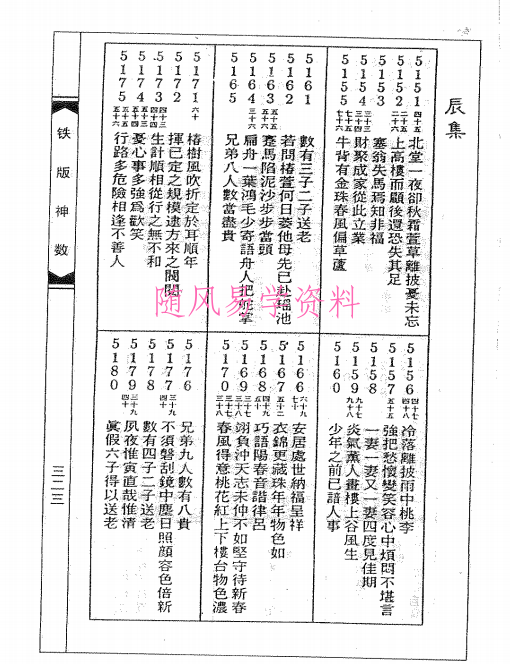 辰集
5151 四十五 北堂一夜卻秋霜萱草離披憂未忘
5152 二十五 二十六 上高樓而顧後還恐失其足
5153 塞翁失馬焉知非福
5154 三十三 三十四 財聚成家從此立業
5155 七十五 七十六 牛背有金珠春風偏草蘆
5156 四十七 四十八 冷落離披雨中桃李
5157 五十五 強把愁懷變笑容心中煩悶不堪言
5158 一妻一妻又一妻四度見佳期
5159 九十七 九十八 炎氣薰人畫樓上谷風生
5160 少年之前已諳人事
5161 數有三子二子送老
5162 若問椿萱何日萎他母先已赴瑶池
5163 五十五 五十六 蹇馬陷泥沙步步當頭
5164 三十三 三十四 扁舟一葉鴻毛少寄語舟人把舵掌
5165 兄弟八人數當盡貴
5166 六十九 七十 安居處世納福呈祥
5167 五十一 五十二 衣錦更藏珠年年物色如
5168 四十九 五十 巧語陽春音諧律呂
5169 三十一 三十二 翊負沖天志未伸不如堅守待新春
5170 三十七 三十八 春風得意桃花紅上下樓台物色濃
5171 六十 椿樹風吹折定於耳順年
5172 揮已定之規模遶方來之閥閱
5173 四十三 四十四 生計順相從行之無不和
5174 五十三 五十四 憂心事多強為歡笑
5175 五十五 五十六 行路多危險相逢不善人
5176 兄弟九人數有八貴
5177 三十九 四十 不須磐刮鏡中塵日照顏容色倍新
5178 數有四子二子送老
5179 三十九 四十 夙夜惟寅直哉惟清
5180 眞假六子得以送老
铁版神数
三二三
随风易学资料